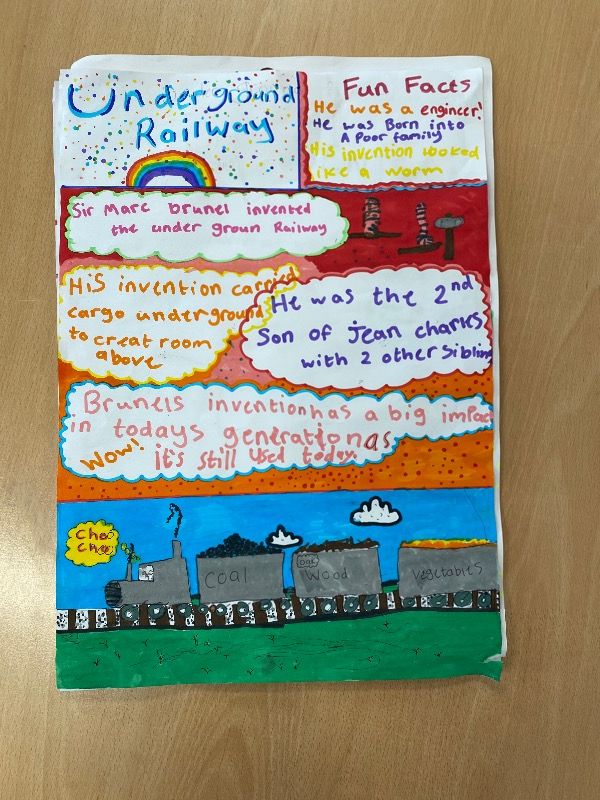 Underground
Railway
Fun Facts
He was a engineer!
He was Born into
A Poor family
His invention looked
like a worm
Sir Marc brunel invented
the under groun Railway
His invention carried
cargo underground
to creat room
above
He was the 2nd
Son of jean charles
with 2 other Sibling
Brunels invention has a big impact
in todays generation as
Wow! it's still used today.
Choo
Choo
Coal
Oak
Wood
Vegetables